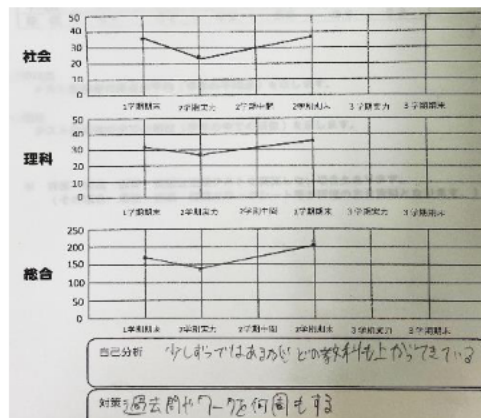 50
40
社会 30
20
10
0
1学期期末 2学期実力 2学期中間 2学期期末 3学期実力 3学期期末
50
40
理科 30
20
10
0
1学期期末 2学期実力 2学期中間 2学期期末 3学期実力 3学期期末
250
200
総合 150
100
50
0
1学期期末 2学期実力 2学期中間 2学期期末 3学期実力 3学期期末
自己分析 少しずつではあるけどどの教科も上がってきている
対策 過去問やワークを何周もする